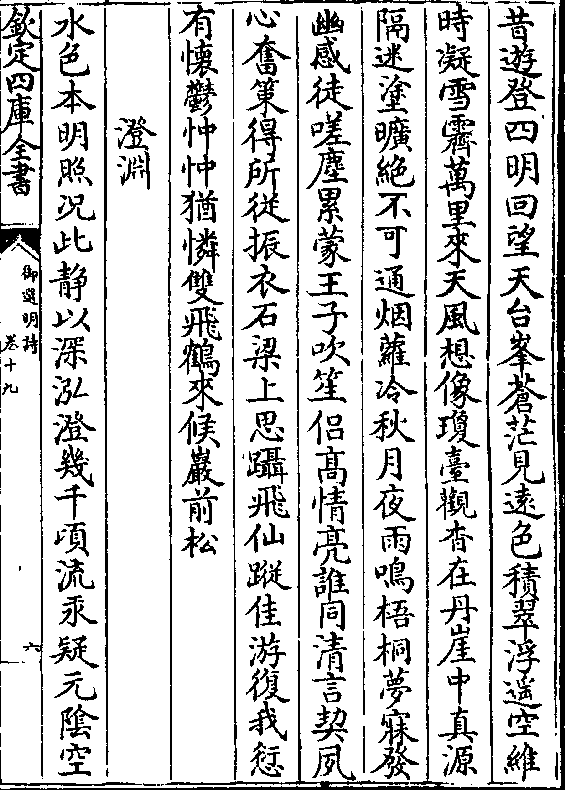 昔遊登四明回望天台峯蒼茫見遠色積翠浮遥空維
時凝雪霽萬里來天風想像瓊臺觀杳在丹崖中真源
隔迷塗曠絶不可通烟蘿冷秋月夜雨鳴梧桐夢寐發
幽感徒嗟塵累蒙王子吹笙侣髙情亮誰同清言契夙
心奮策得所從振衣石梁上思躡飛仙蹤佳游復我愆
有懷鬱忡忡猶憐雙飛鶴來候巖前松
澄淵
水色本明照况此静以深泓澄幾千頃流汞疑元陰空
欽定四庫全書
御選明詩
卷十九
六